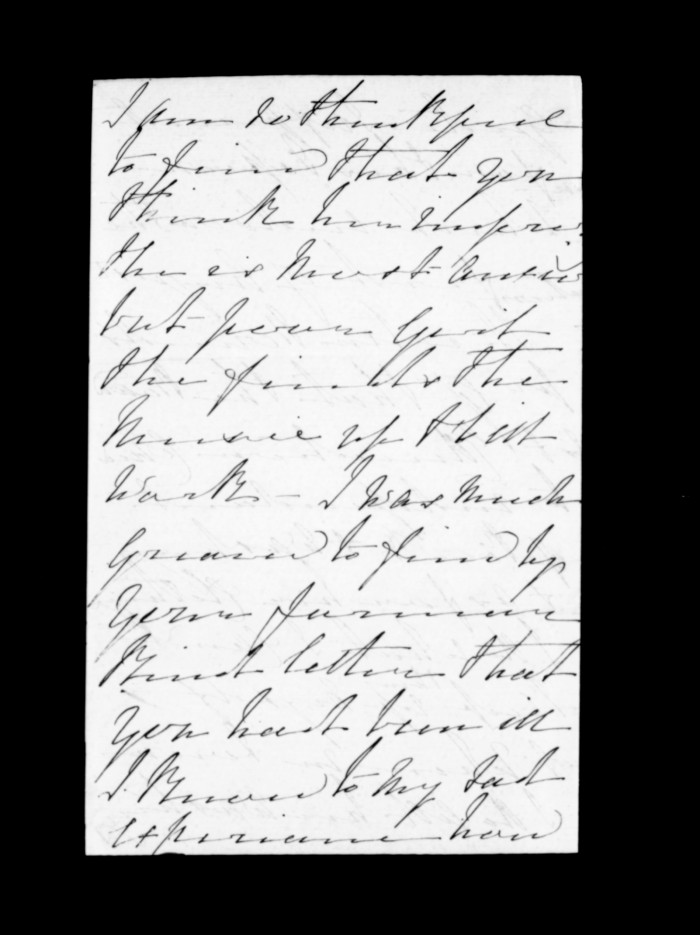 I am so thankful
to find that you
think her improv
She is most anxio
but poor
She finds the
Music up hill
Work - I was much
Grieved to find by
your former
kind letter that
you had been ill
I know to my sad
experience how